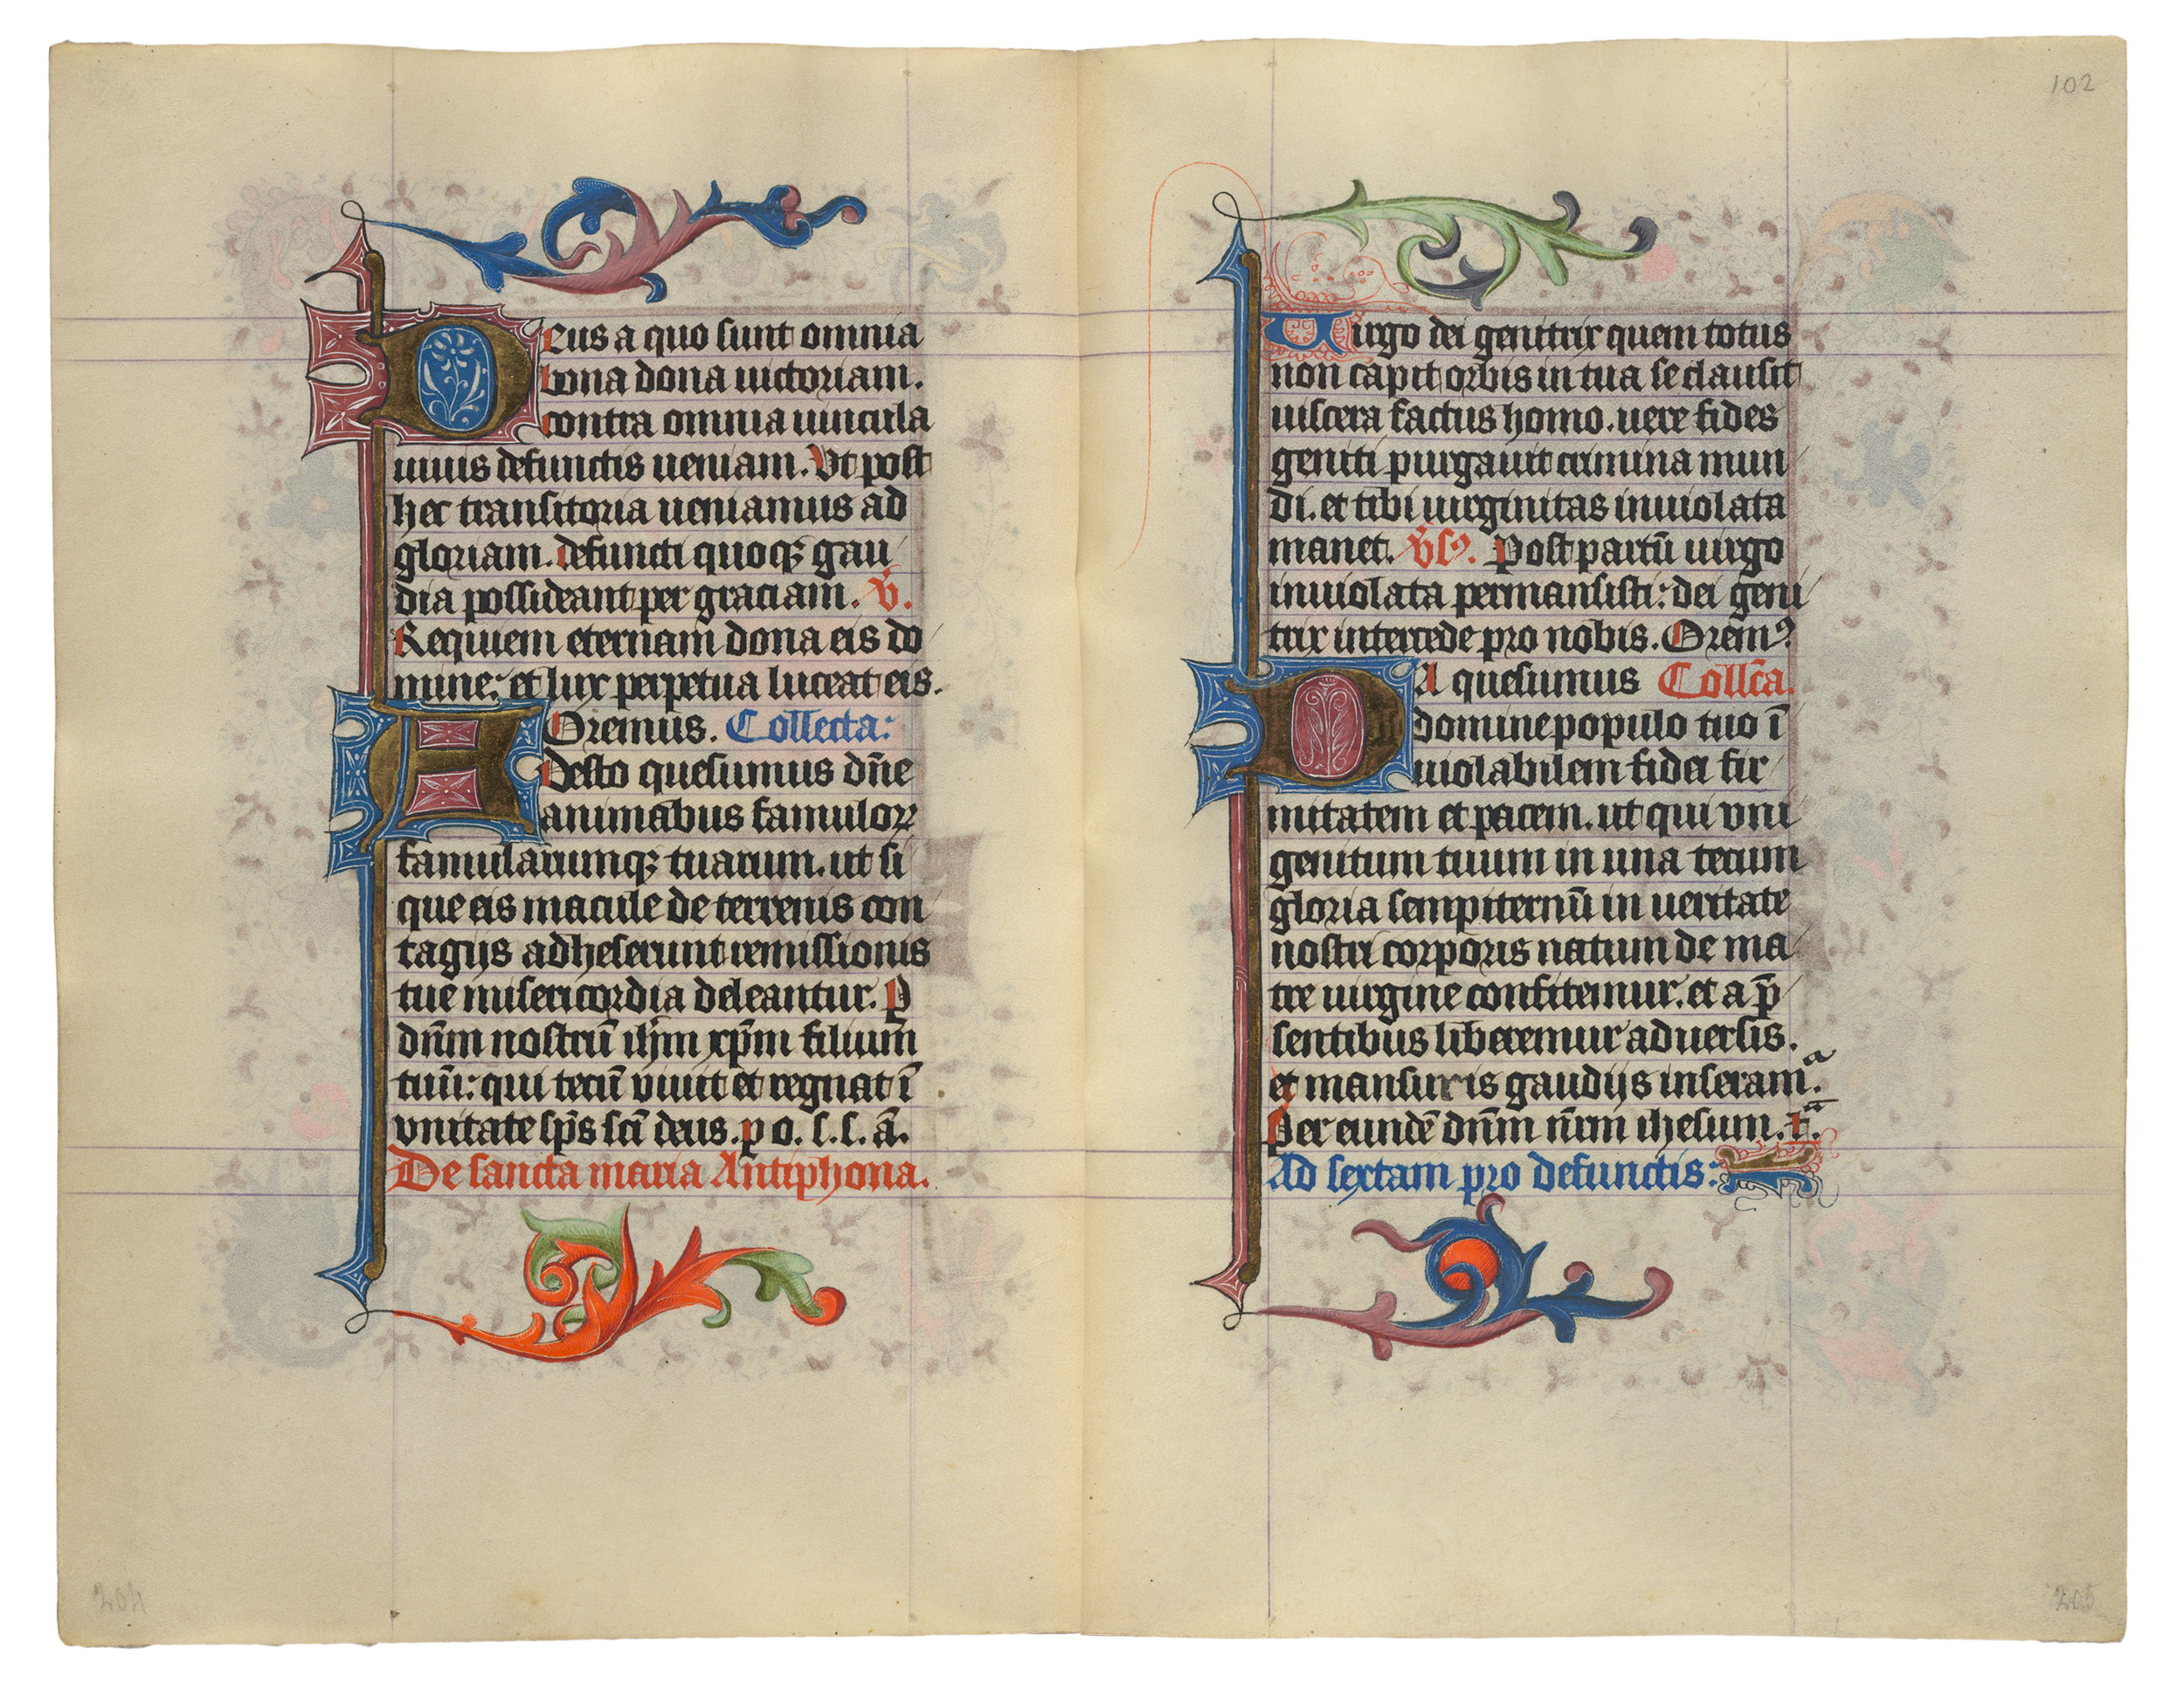 Deus a quo sunt omnia
bona dona uictoriam.
contra omnia uincula
uiuis defunctis ueniam. Ut post
hec transitoria ueniamus ad
gloriam. defuncti quoqꝫ gau
dia possideant per graciam. v̄.
Requiem eternam dona eis do
mine: et lux perpetua luceat eis.
Oremus. Collecta:
Adesto quesumus dn̄e
animabus famuloꝝ
famularumqꝫ tuarum. ut si
que eis macule de terrenis con
tagijs adheserunt remissionis
tue misericordia deleantur. P
dn̄m nostrū ih̄m xp̄m filium
tuū: qui tecū viuit et regnat ī
vnitate sp̄s sc̄i deus. p o. s. s. ā.
De sancta maria Antiphona.
102
Uirgo dei genitrix quem totus
non capit orbis in tua se clausit
uiscera factus homo. uere fides
geniti purgauit crimina mun
di. et tibi uirginitas inuiolata
manet. v̄sꝰ. Post partū uirgo
inuiolata permansisti: dei geni
trix intercede pro nobis. Oremꝰ
DA quesumus Coll̄ca.
domine populo tuo ī
uiolabilem fidei fir
mitatem et pacem. ut qui vni
genitum tuum in una tecum
gloria sempiternū in ueritate
nostri corporis natum de ma
tre uirgine confitemur. et a p̄
sentibus liberemur aduersis.
et mansuris gaudijs inseramͣ.
Per eundē dn̄m nr̄m ihesum.
Ad sextam pro defunctis:
204
205